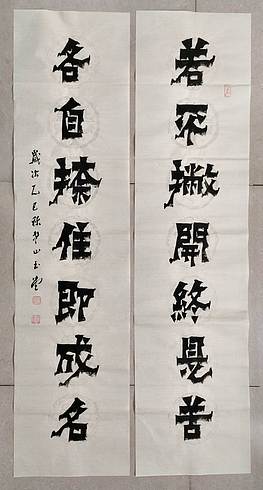 若不撇開終是苦
各自捺住即成名
歲次乙巳秋